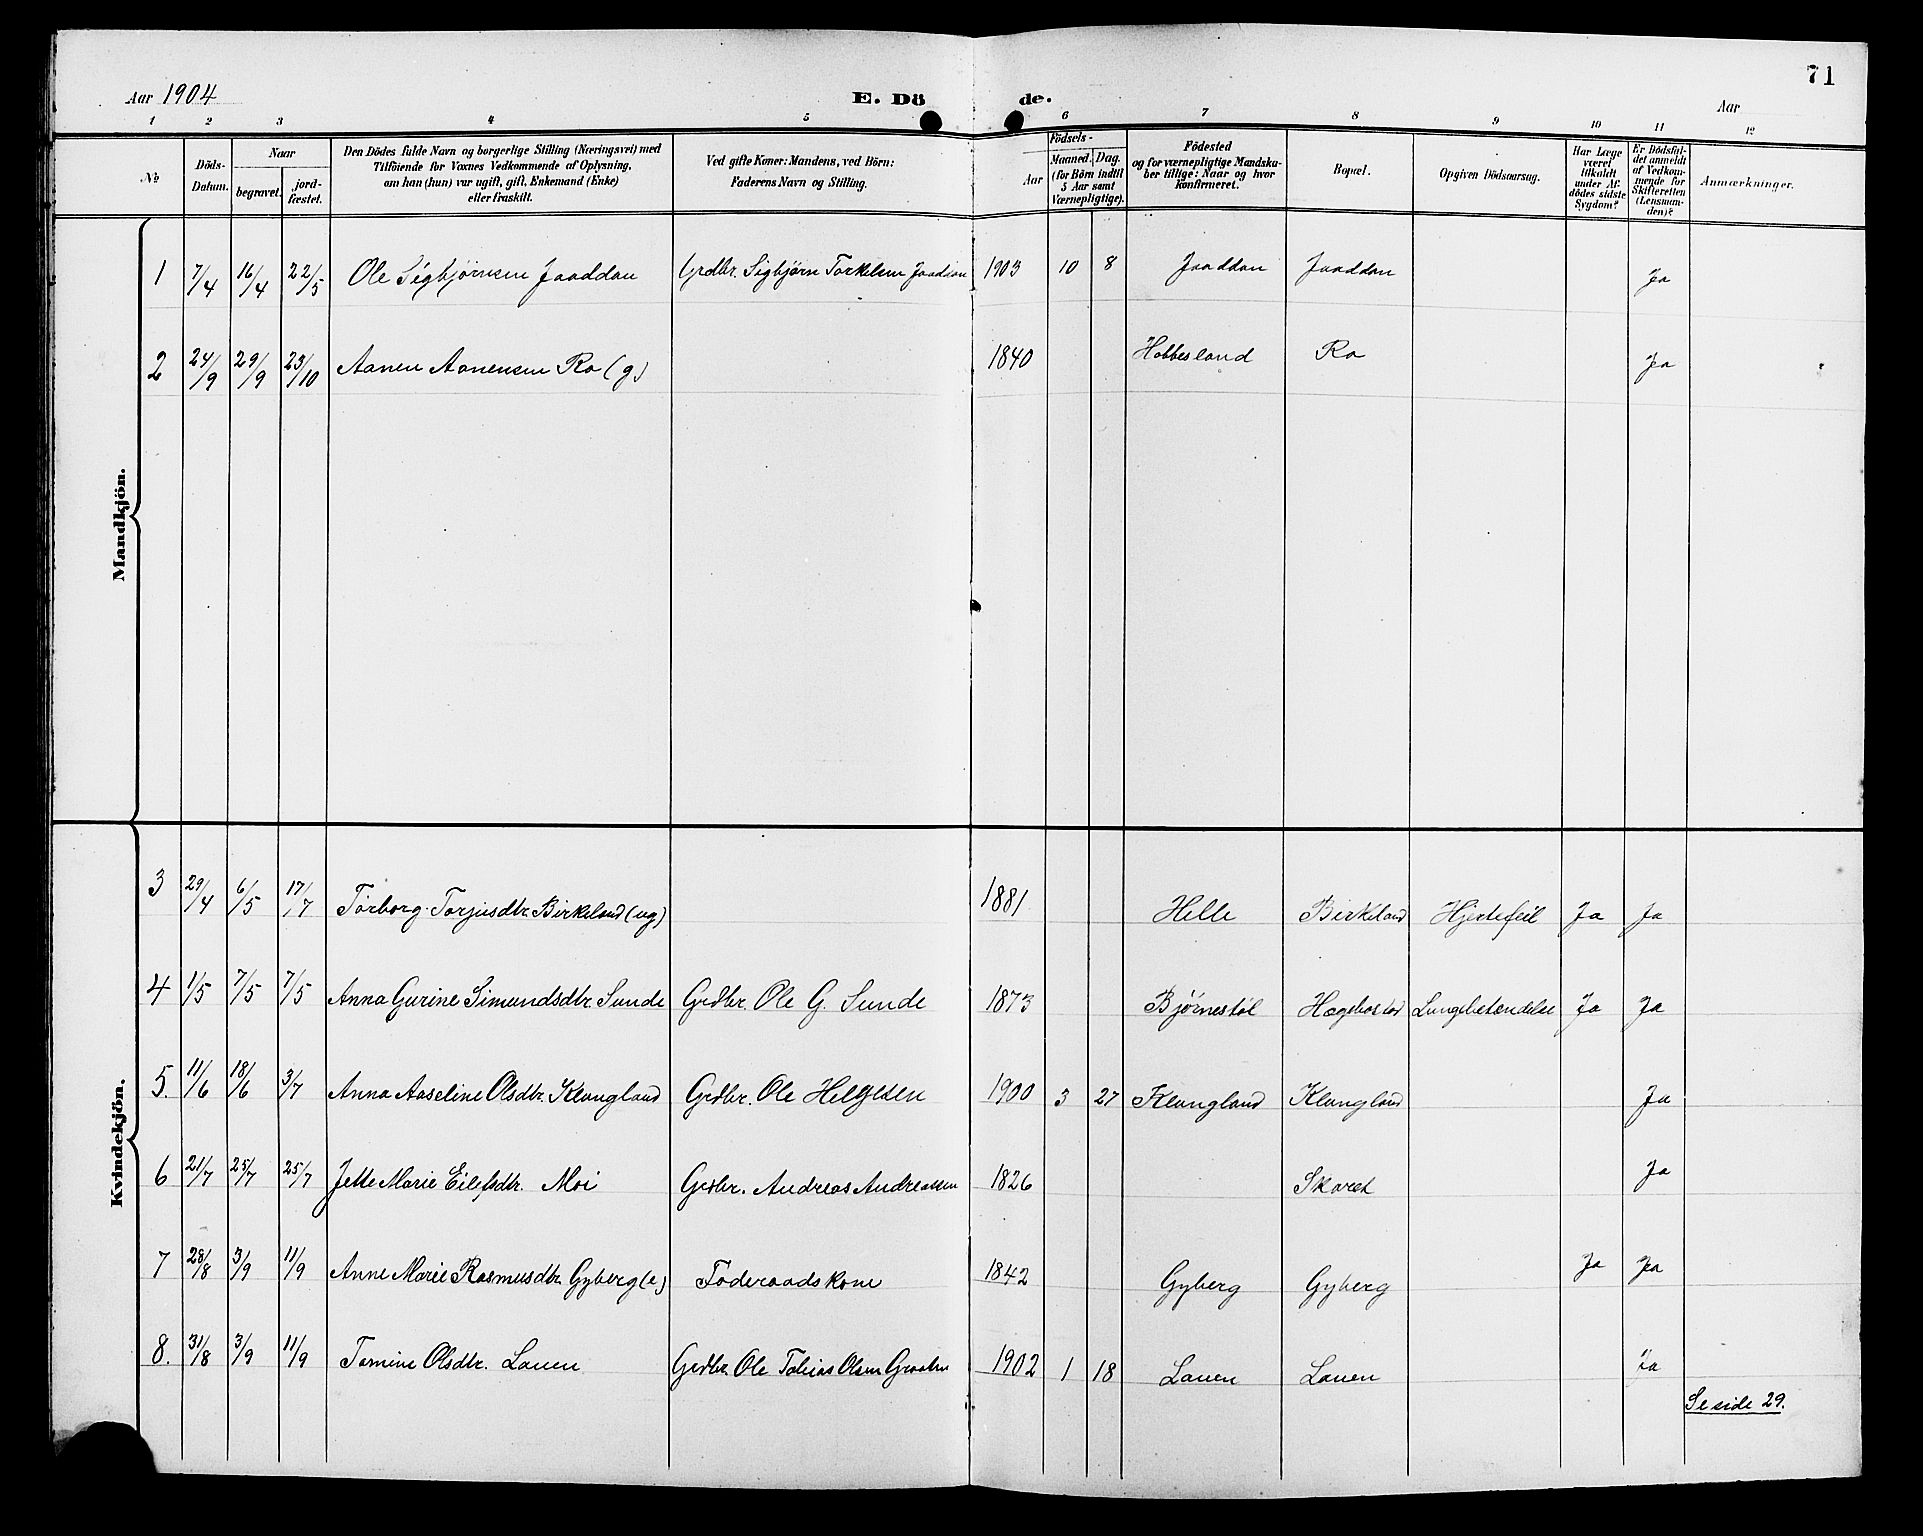 71
Aar 1904
E. Dö de.
Aar
1 2 3 4 5 6 7 8 9 10 11 12
№
Döds-Datum.
Naar
begravet.
jord-fæstet.
Den Dödes fulde Navn og borgerlige Stilling (Næringsvei) med
Tilföiende for Voxnes Vedkommende af Oplysning,
om han (hun) var ugift, gift, Enkemand (Enke)
eller fraskilt.
Ved gifte Koner: Mandens, ved Börn:
Faderens Navn og Stilling.
Aar
Födsels-
Maaned. Dag.
(for Börn indtil
5 Aar samt
Værnepligtige).
Födested
og for værnepligtige Mandska-
ber tillige: Naar og hvor
konfirmeret.
Bopæl.
Opgiven Dödsaarsag.
Har Læge
været
tilkaldt
under Af-
dödes sidste
Sygdom?
Er Dödsfal-
det anmeldt
af Vedkom-
mende for
Skifteretten
(Lensman-
den)?
Anmærkninger.
Mandkjön.
1 7/4 16/4 22/5 Ole Sigbjørnsen Jaaddan Grdbr. Sigbjørn Torkelsen Jaaddan 1903 10 8 Jaaddan Jaaddan Ja
2 24/9 29/9 23/10 Aanen Aanensen Ro (g) 1840 Hobbesland Ro Ja
Kvindekjön.
3 29/4 6/5 17/7 Torborg Torjusdtr. Birkeland (ug) 1881 Helle Birkeland Hjertefeil Ja Ja
4 1/5 7/5 7/5 Anna Gurine Simundsdtr. Sunde Grdbr. Ole G. Sunde 1873 Bjørnestøl Hægebostad Lungebetændelse Ja Ja
5. 11/6 18/6 3/7 Anna Aaseline Olsdtr. Klungland Grdbr. Ole Helgesen 1900 3 27 Klungland Klungland Ja
6 21/7 25/7 25/7 Jette Marie Eilefsdtr. Moi Grdbr. Andreas Andreassen 1826 Skaret Ja
7 28/8 3/9 11/9 Anne Marie Rasmusdtr. Gyberg (e) Föderaadskone 1842 Gyberg Gyberg Ja Ja
8. 31/8 3/9 11/9 Tomine Olsdtr. Lauen Grdbr. Ole Tobias Olsen 1902 1 18 Lauen Lauen Ja
Se side 29.